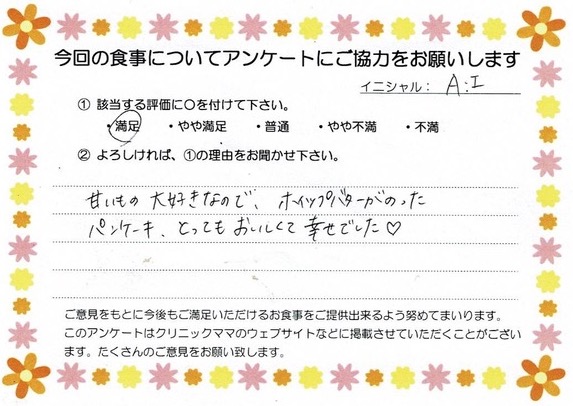 今回の食事についてアンケートにご協力をお願いします
イニシャル： A:I
① 該当する評価に〇を付けて下さい。
・満足 ・やや満足 ・普通 ・やや不満 ・不満
② よろしければ、①の理由をお聞かせ下さい。
甘いもの 大好きなので、 ホイップバターがのった
パンケーキ、とってもおいしくて幸せでした♡
ご意見をもとに今後もご満足いただけるお食事をご提供出来るよう努めてまいります。
このアンケートはクリニックママのウェブサイトなどに掲載させていただくことがござい
ます。たくさんのご意見をお願い致します。